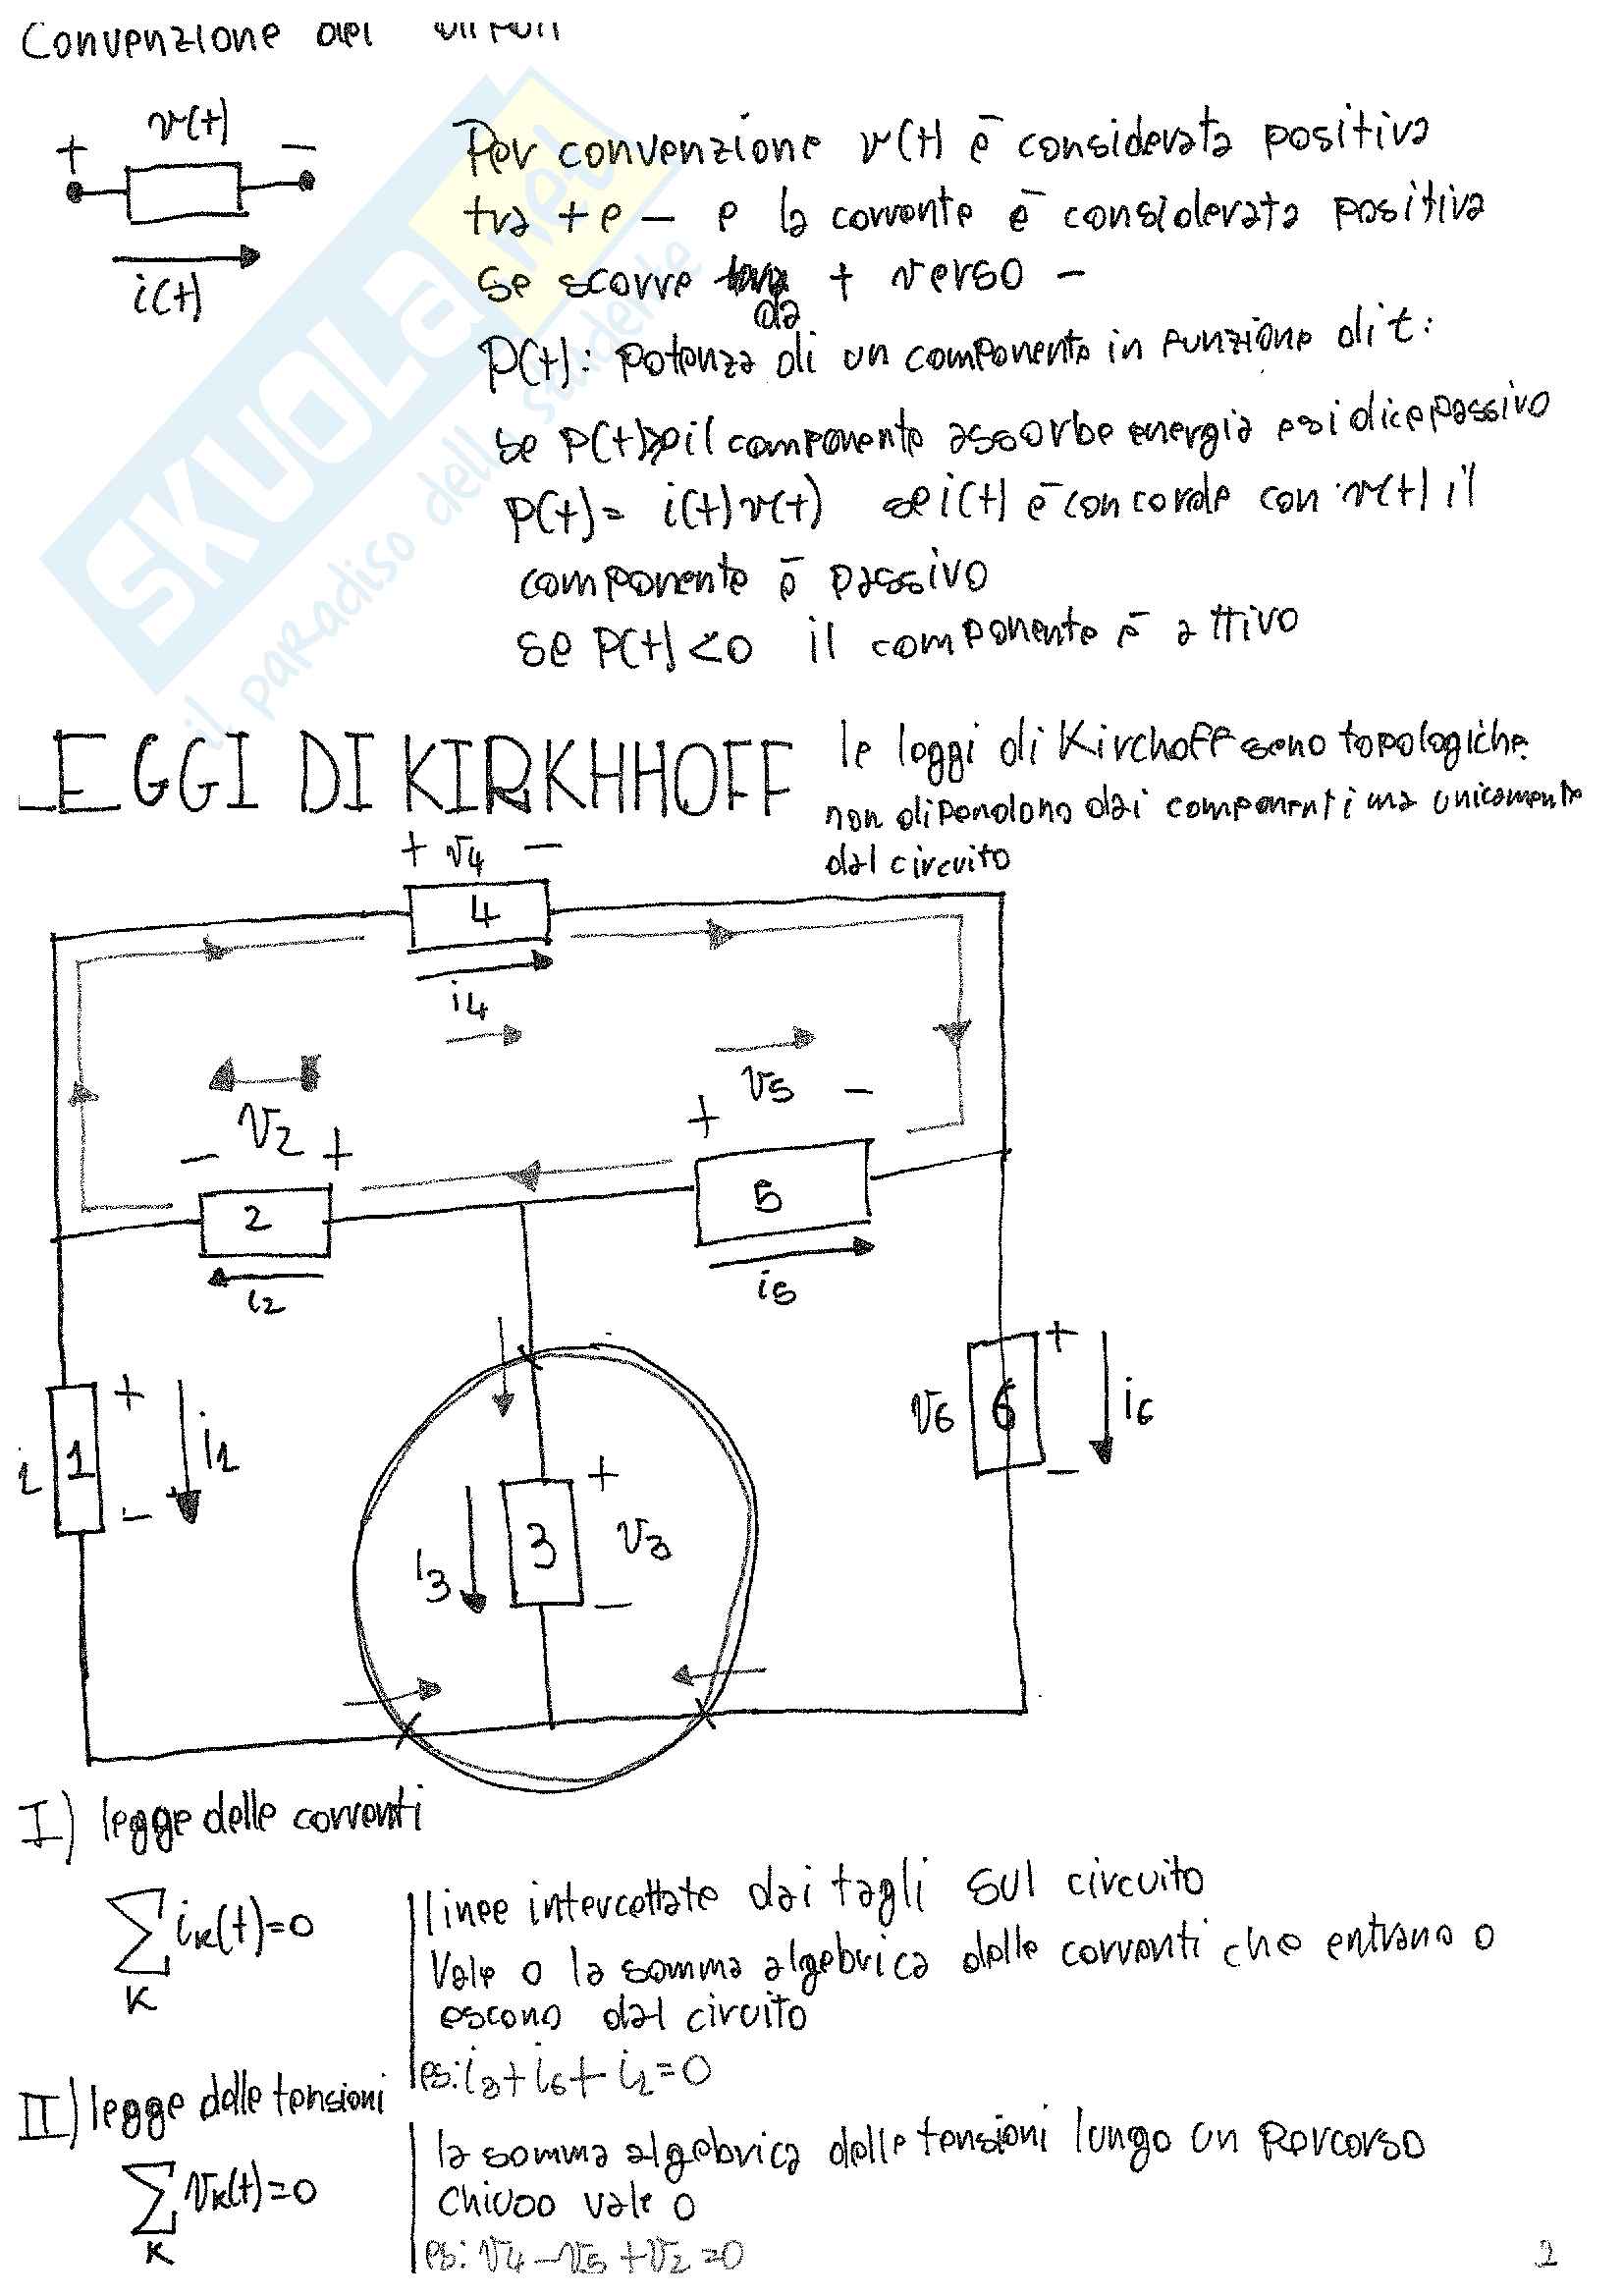 Convenzione dei
v(t)
+ −
i(t)
Per convenzione v(t) è considerata positiva
tra + e − e la corrente è considerata positiva
se scorre da + verso −
P(t): potenza di un componente in funzione di t:
se P(t)>0 il componente assorbe energia e si dice passivo
P(t)= i(t)v(t) se i(t) è concorde con v(t) il
componente è passivo
se P(t)<0 il componente è attivo
SKUOLA.net
il paradiso dello studente
LEGGI DI KIRKHHOFF
le leggi di Kirchoff sono topologiche.
non dipendono dai componenti ma unicamente
dal circuito
+ v4 −
4
i4
v5
+ −
v2
− +
2
5
i2
i5
+
1
i1
−
i
+
v6
6
i6
−
+
i3
3
v3
−
I) legge delle correnti
∑ iₖ(t)=0
K
linee intercettate dai tagli sul circuito
Vale 0 la somma algebrica delle correnti che entrano o
escono dal circuito
es: i3+i6+i1=0
II) legge delle tensioni
∑ vₖ(t)=0
K
la somma algebrica delle tensioni lungo un percorso
chiuso vale 0
es: v4−v5+v2=0
1